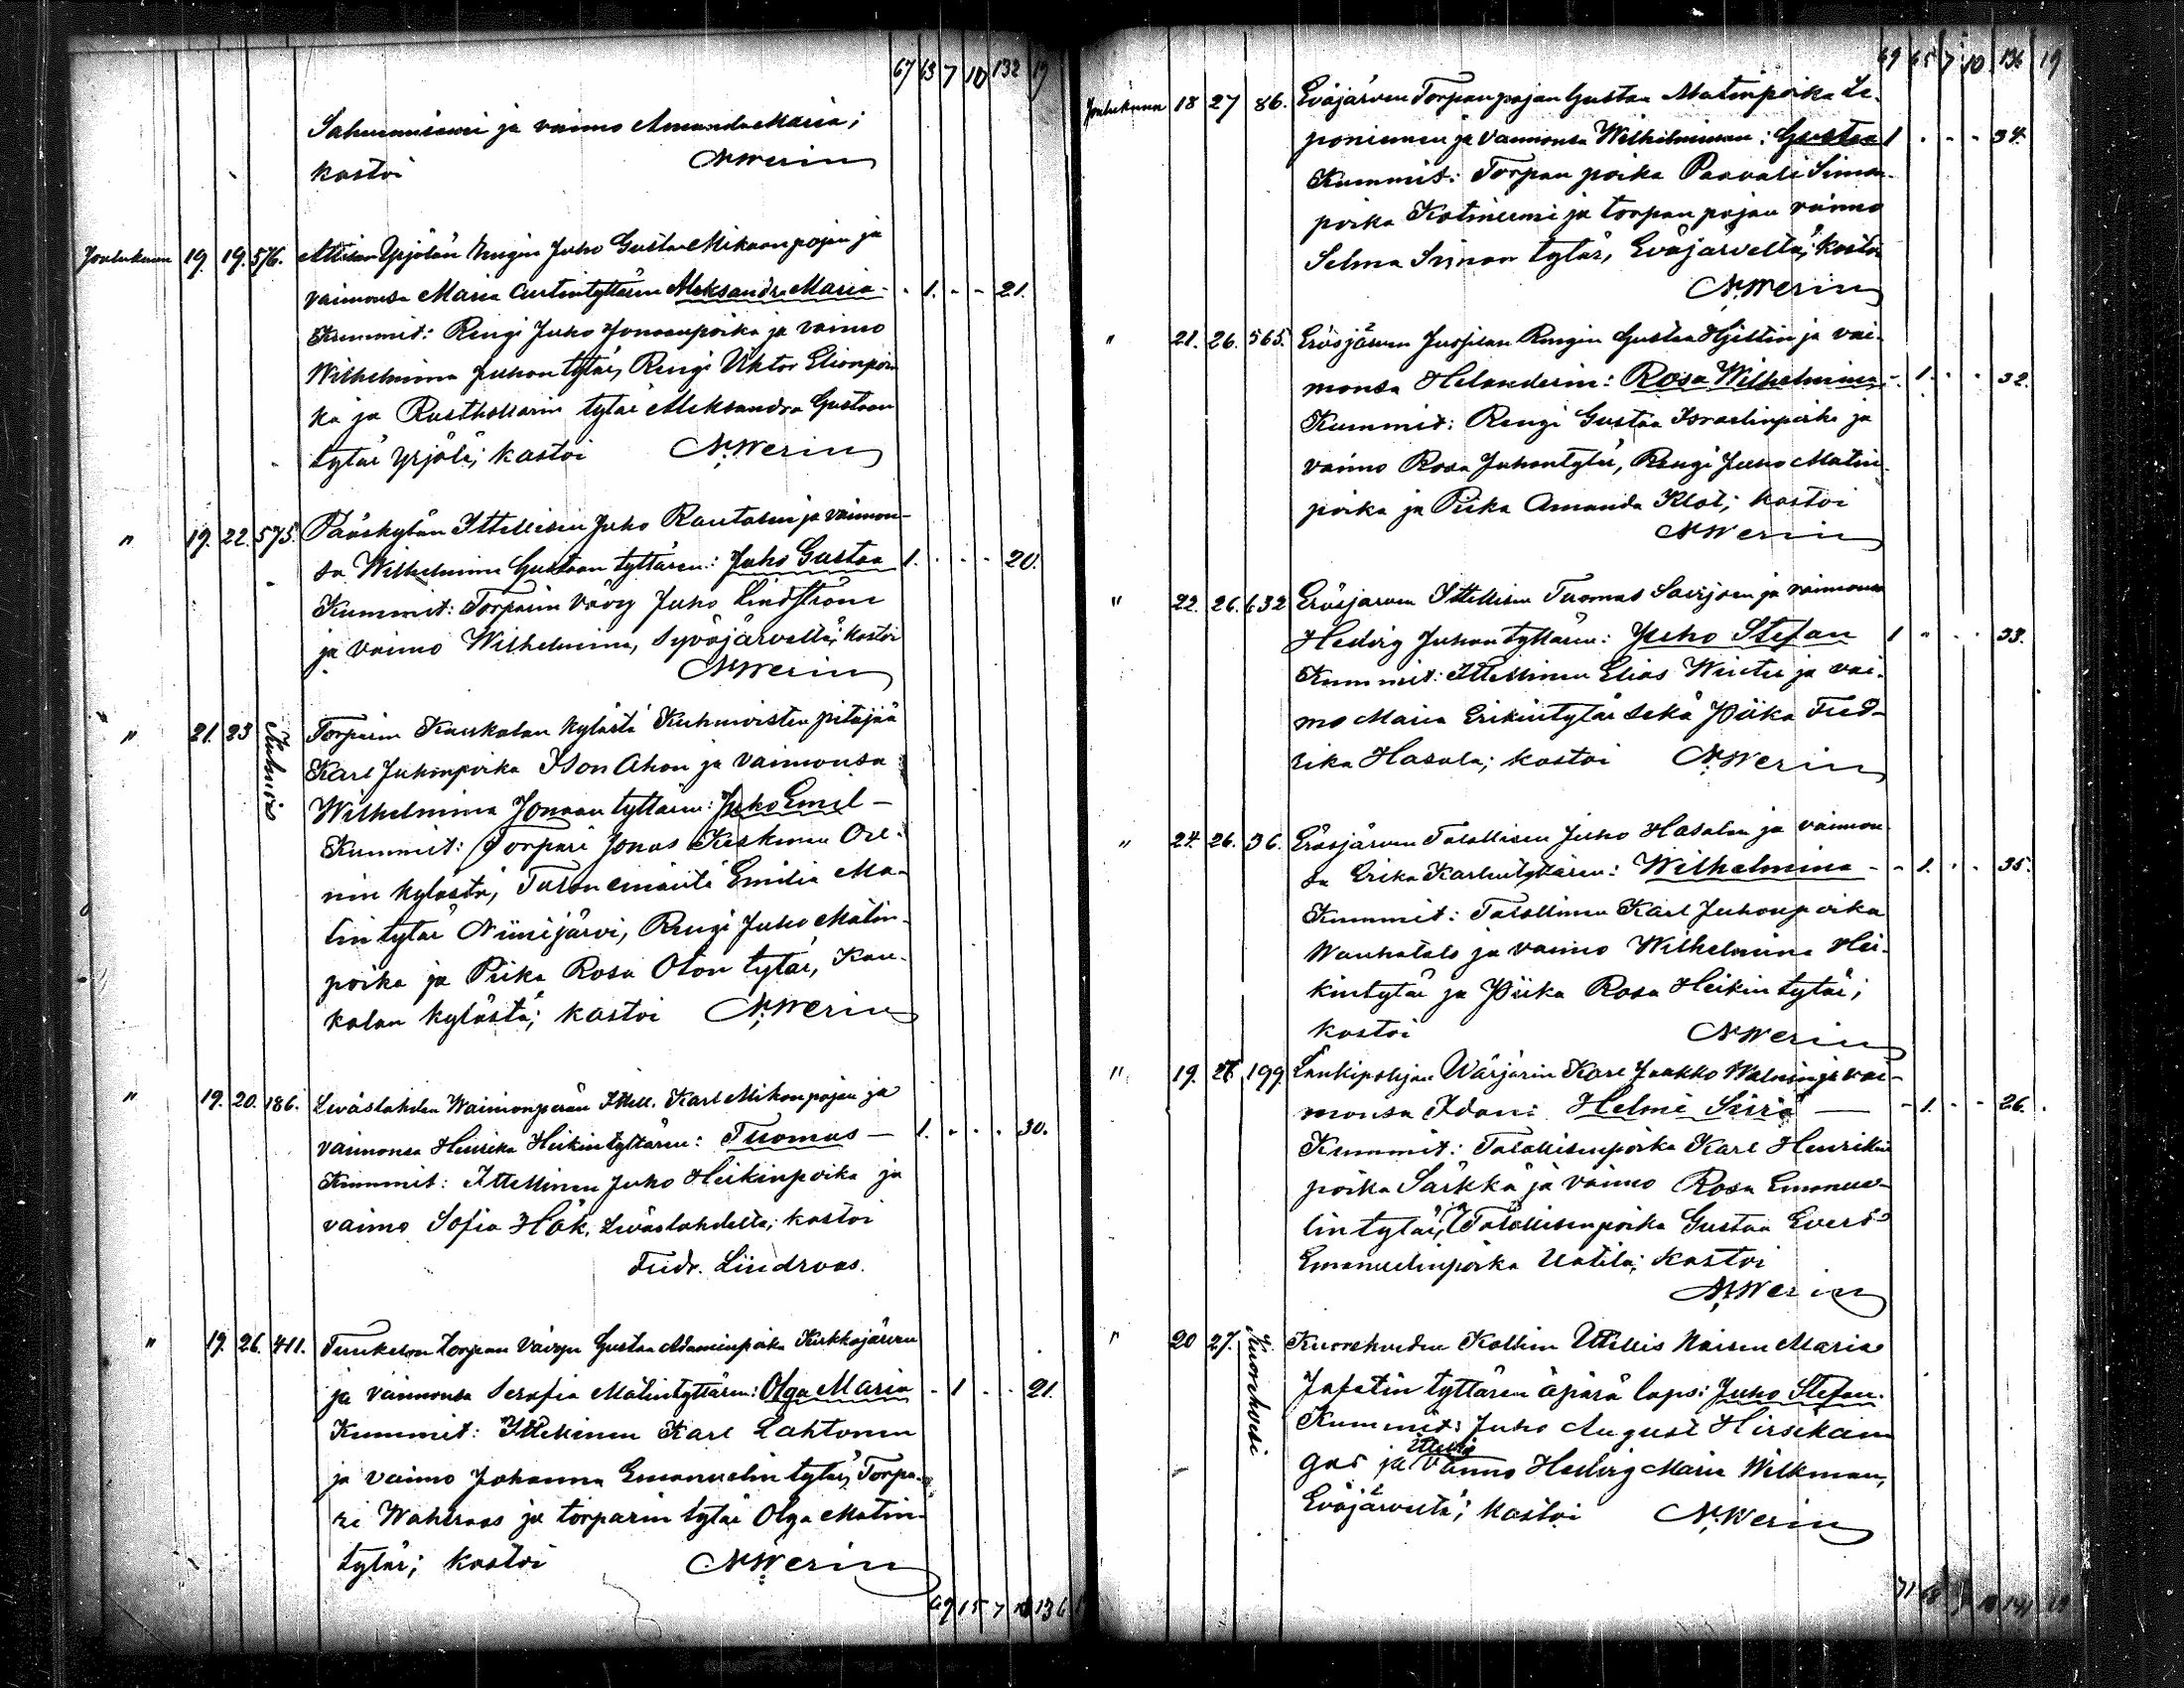 67 63 7 10 132 19
ja vaimo Amanda Maria;
kastoi NWerin
Joulukuun 19. 19. 576. Attilan Yrjölän Rengin Juho Gustaa Mikaanpojan ja
vaimonsa Maria Antintyttären Aleksandra Maria - - 1. - - 21.
Kummit: Rengi Juho Jonaanpoika ja vaimo
Wilhelmina Juhontytär, Rengi Viktor Elianpoi-
ka ja Rusthollarin tytär Aleksandra Gustaan
tytär Yrjölä; kastoi NWerin
" 19. 22. 575. Pääskylän Ittellisen Juho Rautalin ja vaimon-
sa Wilhelmina Gustaan tyttären: Juho Gustaa 1. - - - 20.
Kummit: Torparin vävy Juho Lindström
ja vaimo Wilhelmina, Syväjärveltä; kastoi
NWerin
" 21. 23 Kuhmois Torparin Kaukolan kylästä Kuhmoisten pitäjää
Karl Juhonpoika Ison Ahon ja vaimonsa
Wilhelmina Jonaan tyttären: Juho Emil -
Kummit: Torpari Jonas Keskinen
nin kylästä, Talon emäntä Emilia Ma-
tin tytär Niinijärvi, Rengi Juho Matin-
poika ja Piika Rosa Oton tytär, Kau-
kolan kylästä; kastoi NWerin
" 19. 20. 186. Leväslahden Waimonperän Ittell. Karl Mikonpojan ja
vaimonsa Henrika Heikintyttären: Tuomas - 1. - - - 30.
Kummit: Ittellinen Juho Heikinpoika ja
vaimo Sofia Hök, Leväslahdelta; kastoi
Fredr. Lindroos.
" 19. 26. 411. Tunkelon torpan vävyn Gustaa Adaminpoika Kirkkojärven
ja vaimonsa Serafia Matintyttären: Olga Maria - 1 - - 21.
Kummit: Ittellinen Karl Lahtonen
ja vaimo Johanna Emanuelin tytär, Torpa-
ri Wahlroos ja torparin tytär Olga Matin-
tytär; kastoi NWerin
69 65 7 10 136 19
69 65 7 10 136 19
Joulukuun 18 27 86. Eväjärven Torpanpojan Gustaa Matinpoika Le-
poniemen ja vaimonsa Wilhelminan: Gustaa 1 - - - 34.
Kummit: Torpan poika Paavali Simon-
poika Kotiniemi ja torpan pojan vaimo
Selma Simon tytär, Eväjärveltä; kastoi
NWerin
" 21. 26. 565. Eräsjärven Juupilan Rengin Gustaa Hjeltin ja vai-
monsa Helanderin: Rosa Wilhelmina - 1. - - 32.
Kummit: Rengi Gustaa Israelinpoika ja
vaimo Rosa Juhontytär, Rengi Juho Matin-
poika ja Piika Amanda Klot; kastoi
NWerin
" 22. 26. 632 Eräsjärven Ittellisen Tuomas Savijoen ja vaimonsa
Hedvig Juhontyttären: Juho Stefan 1 - - - 33.
Kummit: Ittellinen Elias Wirta ja vai-
mo Maria Erikintytär sekä Piika Fred-
rika Hasala; kastoi NWerin
" 24. 26. 36. Eräsjärven Talollisen Juho Hasalan ja vaimon-
sa Erika Karlintyttären: Wilhelmina - - 1. - - 35.
Kummit: Talollinen Karl Juhonpoika
Wanhatalo ja vaimo Wilhelmina Hei-
kintytär ja Piika Rosa Heikin tytär;
kastoi NWerin
" 19. 27. 199. Länkipohjan Wärjärin Karl Jaakko Walenin ja vai-
monsa Idan: Helmi Siiri - - 1. - - 26.
Kummit: Talollisenpoika Karl Henrikin
poika Särkkä ja vaimo Rosa Emanue-
lintytär, ja Talollisenpoika Gustaa Evert
Emanuelinpoika Uotila; kastoi
NWerin
" 20 27. Kuorehvesi Kuorehveden Kallion Ittellis Naisen Maria
Jafetin tyttären äpärä lapsi: Juho Stefan.
Kummit: Juho August Hirsikan-
gas ja Ittellis vaimo Hedvig Maria Wilkman,
Eväjärveltä; kastoi NWerin
71 68 7 10 141 19